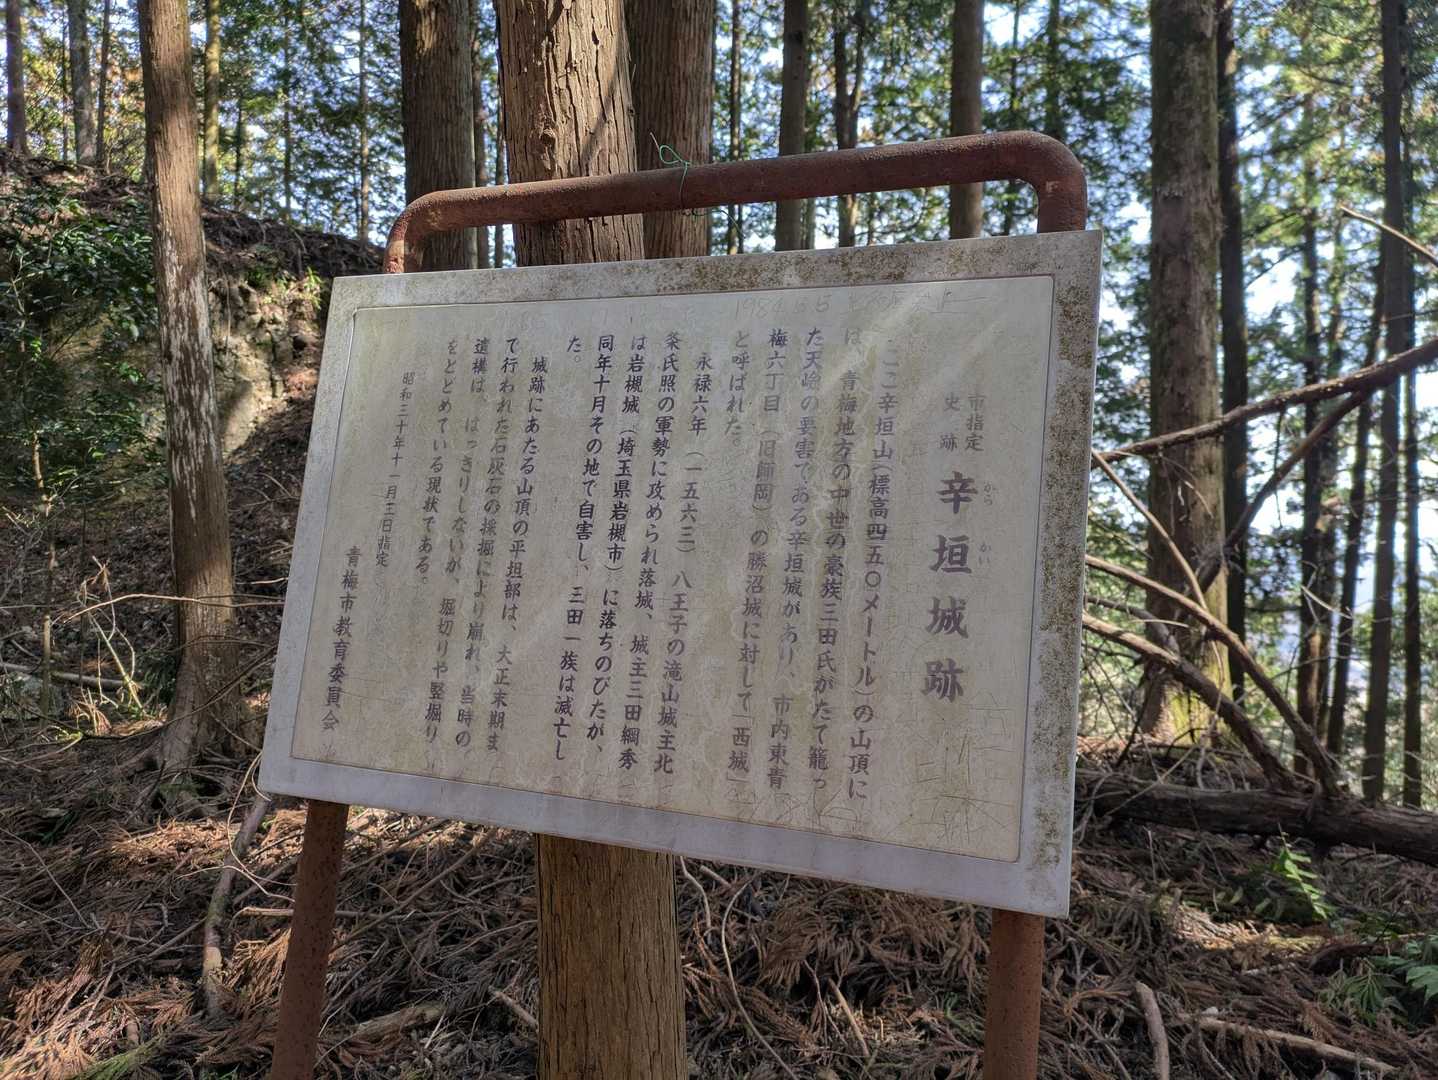 1984.5.5
市指定
史跡
辛垣城跡
から
かい
ここ辛垣山(標高四五〇メートル)の山頂に
は、青梅地方の中世の豪族三田氏がたて籠っ
た天嶮の要害である辛垣城があり、市内東青
梅六丁目(旧師岡)の勝沼城に対して「西城」
と呼ばれた。
永禄六年(一五六三)八王子の滝山城主北
条氏照の軍勢に攻められ落城、城主三田綱秀
は岩槻城(埼玉県岩槻市)に落ちのびたが、
同年十月その地で自害し、三田一族は滅亡し
た。
城跡にあたる山頂の平坦部は、大正末期ま
で行われた石灰石の採掘により崩れ、当時の
遺構は、はっきりしないが、堀切りや竪堀り
をとどめている現状である。
昭和三十年十一月三日指定
青梅市教育委員会